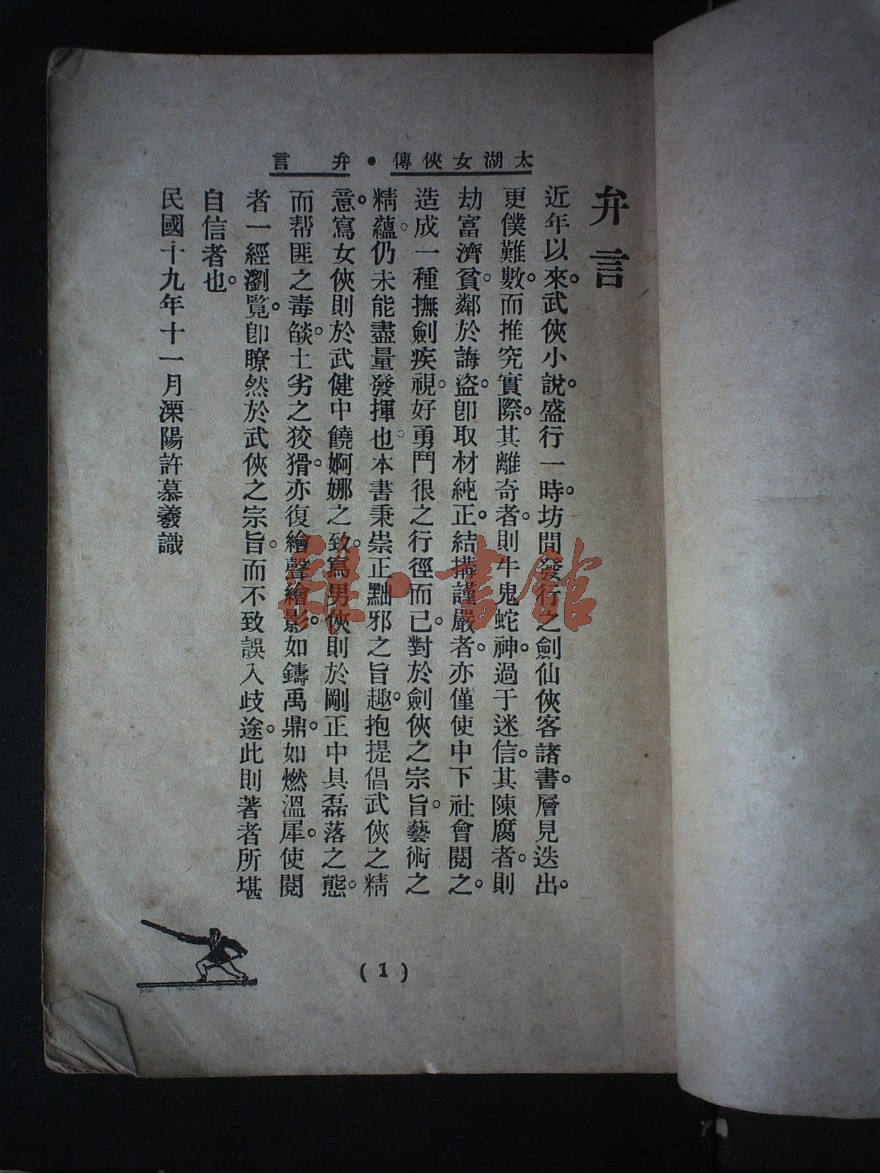 太湖女俠傳・弁言
弁言
近年以來。武俠小說。盛行一時。坊間發行之劍仙俠客諸書。層見迭出。
更僕難數。而推究實際。其離奇者。則牛鬼蛇神。過于迷信。其陳腐者。則
劫富濟貧。鄰於誨盜。卽取材純正。結構謹嚴者。亦僅使中下社會閱之。
造成一種撫劍疾視。好勇鬥很之行徑而已。對於劍俠之宗旨。藝術之
精蘊。仍未能盡量發揮也。本書秉崇正黜邪之旨趣。抱提倡武俠之精
意。寫女俠則於武健中饒婀娜之致。寫男俠則於剛正中具磊落之態。
而帮匪之毒燄。土劣之狡猾。亦復繪聲繪影。如鑄禹鼎。如燃溫犀。使閱
者一經瀏覽。卽瞭然於武俠之宗旨。而不致誤入歧途。此則著者所堪
自信者也。
民國十九年十一月溧陽許慕羲識
(1)
雜・書館